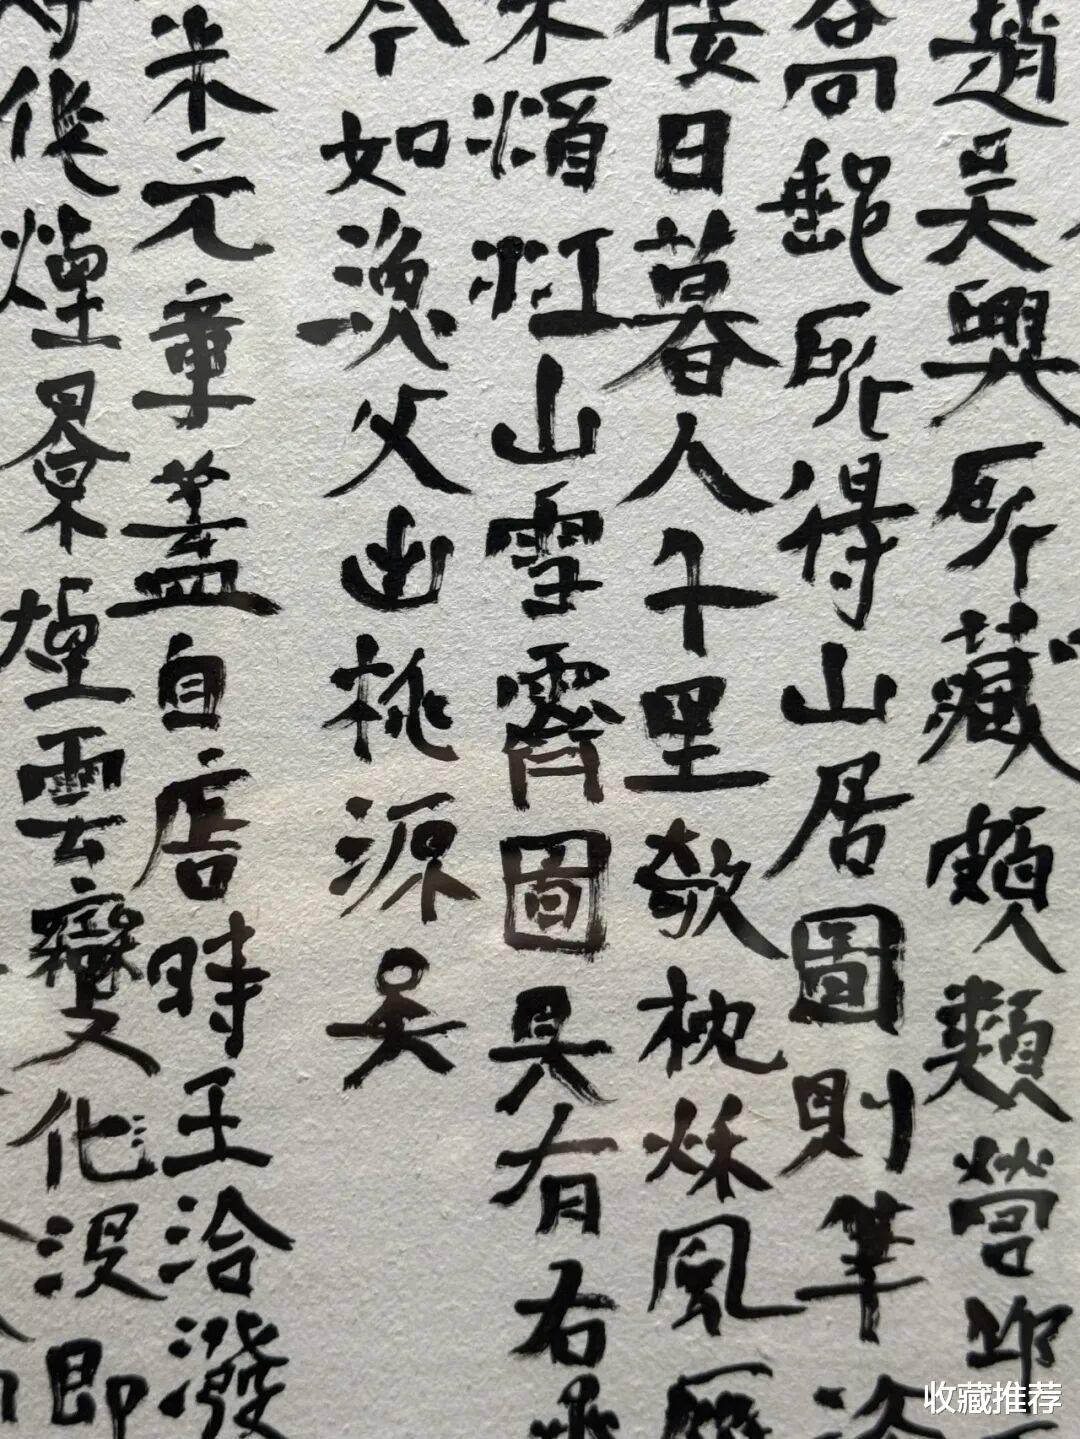 趙吳興所藏頗類營邱
高郵所得山居圖則筆
樓日暮人千里欹枕秋風
米須江山雪霽圖具有右
今如漁父出桃源矣
米元章蓋自唐時王洽潑
煙景煙雲變化没即
收藏推荐